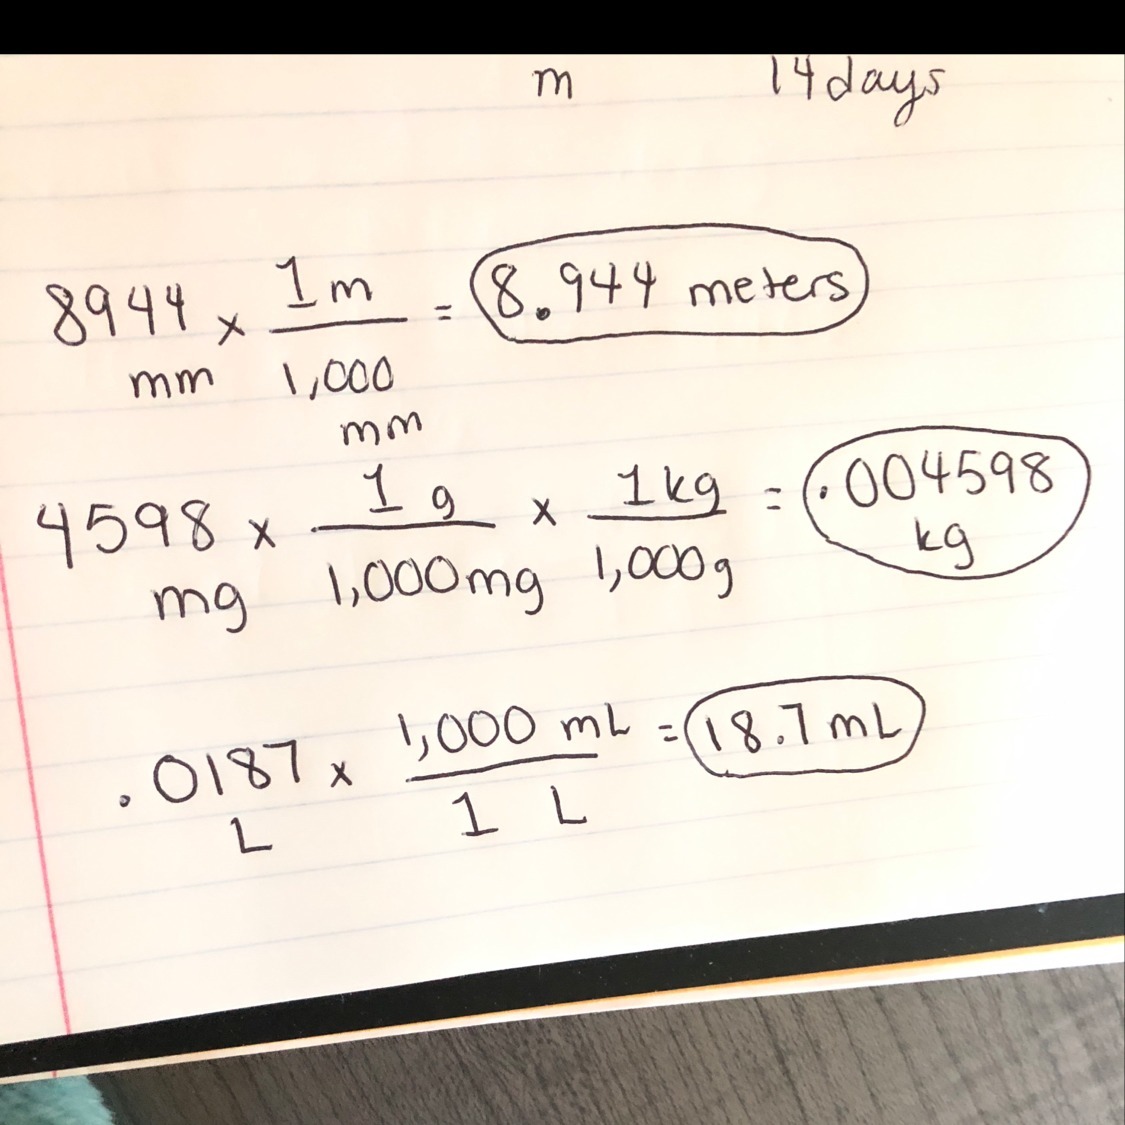 m 14 days
8944 mm x 1 m / 1,000 mm = 8.944 meters
4598 mg x 1 g / 1,000 mg x 1 kg / 1,000 g = .004598 kg
.0187 L x 1,000 mL / 1 L = 18.7 mL